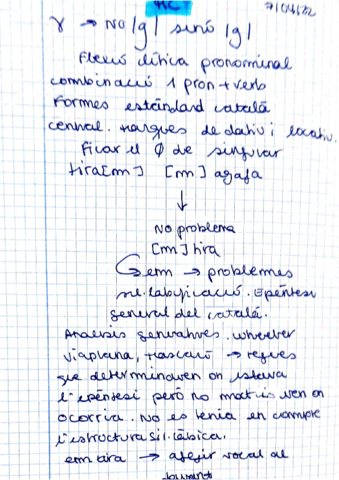 HCT
7/04/22
γ → NO |g| sinó |g|
Flexió clítica pronominal
combinació 1 pron + verb
Formes estàndard català
central. marques de datiu i locatiu.
ficar el Ø de singular
tira[m] [m] agafa
↓
No problema
[m] tira
em → problemes
sil·labificació. Epèntesi
general del català.
Analisis generatives. wheeler
viaplana, mascaró → regles
que determinaven on estava
l'epèntesi però no motiven on
ocorria. No es tenia en compte
l'estructura sil·làbica.
em tira → afegir vocal al